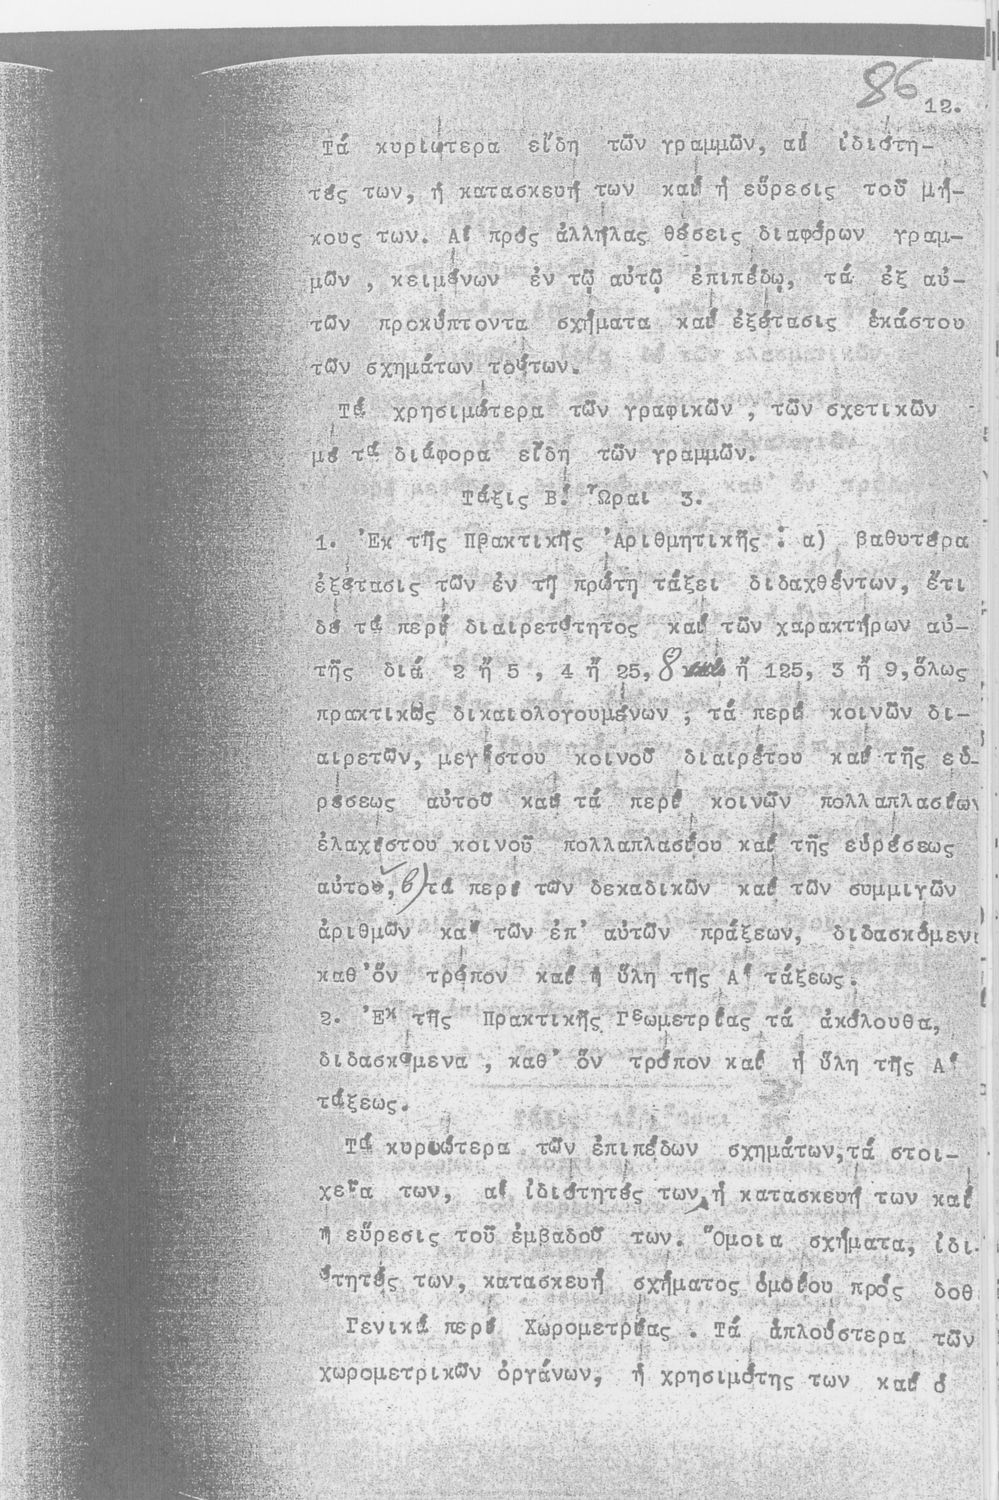 86
12.
Τά κυριώτερα εἴδη τῶν γραμμῶν, αἱ ἰδιότη-
τές των, ἡ κατασκευή των καί ἡ εὕρεσις τοῦ μή-
κους των. Αἱ πρός ἀλλήλας θέσεις διαφόρων γραμ-
μῶν , κειμένων ἐν τῷ αὐτῷ ἐπιπέδῳ, τά ἐξ αὐ-
τῶν προκύπτοντα σχήματα καί ἐξέτασις ἑκάστου
τῶν σχημάτων τούτων.
Τά χρησιμώτερα τῶν γραφικῶν , τῶν σχετικῶν
μέ τά διάφορα εἴδη τῶν γραμμῶν.
Τάξις Β! Ὧραι 3.
1. Ἐκ τῆς Πρακτικῆς Ἀριθμητικῆς : α) βαθυτέρα
ἐξέτασις τῶν ἐν τῇ πρώτῃ τάξει διδαχθέντων, ἔτι
δέ τά περί διαιρετότητος καί τῶν χαρακτήρων αὐ-
τῆς διά 2 ἤ 5 , 4 ἤ 25, 8 ἤ 125, 3 ἤ 9, ὅλως
πρακτικῶς δικαιολογουμένων , τά περί κοινῶν δι-
αιρετῶν, μεγίστου κοινοῦ διαιρέτου καί τῆς εὑ-
ρέσεως αὐτοῦ καί τά περί κοινῶν πολλαπλασίων
ἐλαχίστου κοινοῦ πολλαπλασίου καί τῆς εὑρέσεως
αὐτοῦ, β) τά περί τῶν δεκαδικῶν καί τῶν συμμιγῶν
ἀριθμῶν καί τῶν ἐπ' αὐτῶν πράξεων, διδασκόμενα
καθ' ὅν τρόπον καί ἡ ὕλη τῆς Α' τάξεως.
2. Ἐκ τῆς Πρακτικῆς Γεωμετρίας τά ἀκόλουθα,
διδασκόμενα , καθ' ὅν τρόπον καί ἡ ὕλη τῆς Α'
τάξεως.
Τά κυριώτερα τῶν ἐπιπέδων σχημάτων, τά στοι-
χεῖα των, αἱ ἰδιότητές των, ἡ κατασκευή των καί
ἡ εὕρεσις τοῦ ἐμβαδοῦ των. Ὅμοια σχήματα, ἰδι-
ότητές των, κατασκευή σχήματος ὁμοίου πρός δοθ
Γενικά περί Χωρομετρίας . Τά ἁπλούστερα τῶν
χωρομετρικῶν ὀργάνων, ἡ χρησιμότης των καί ὁ